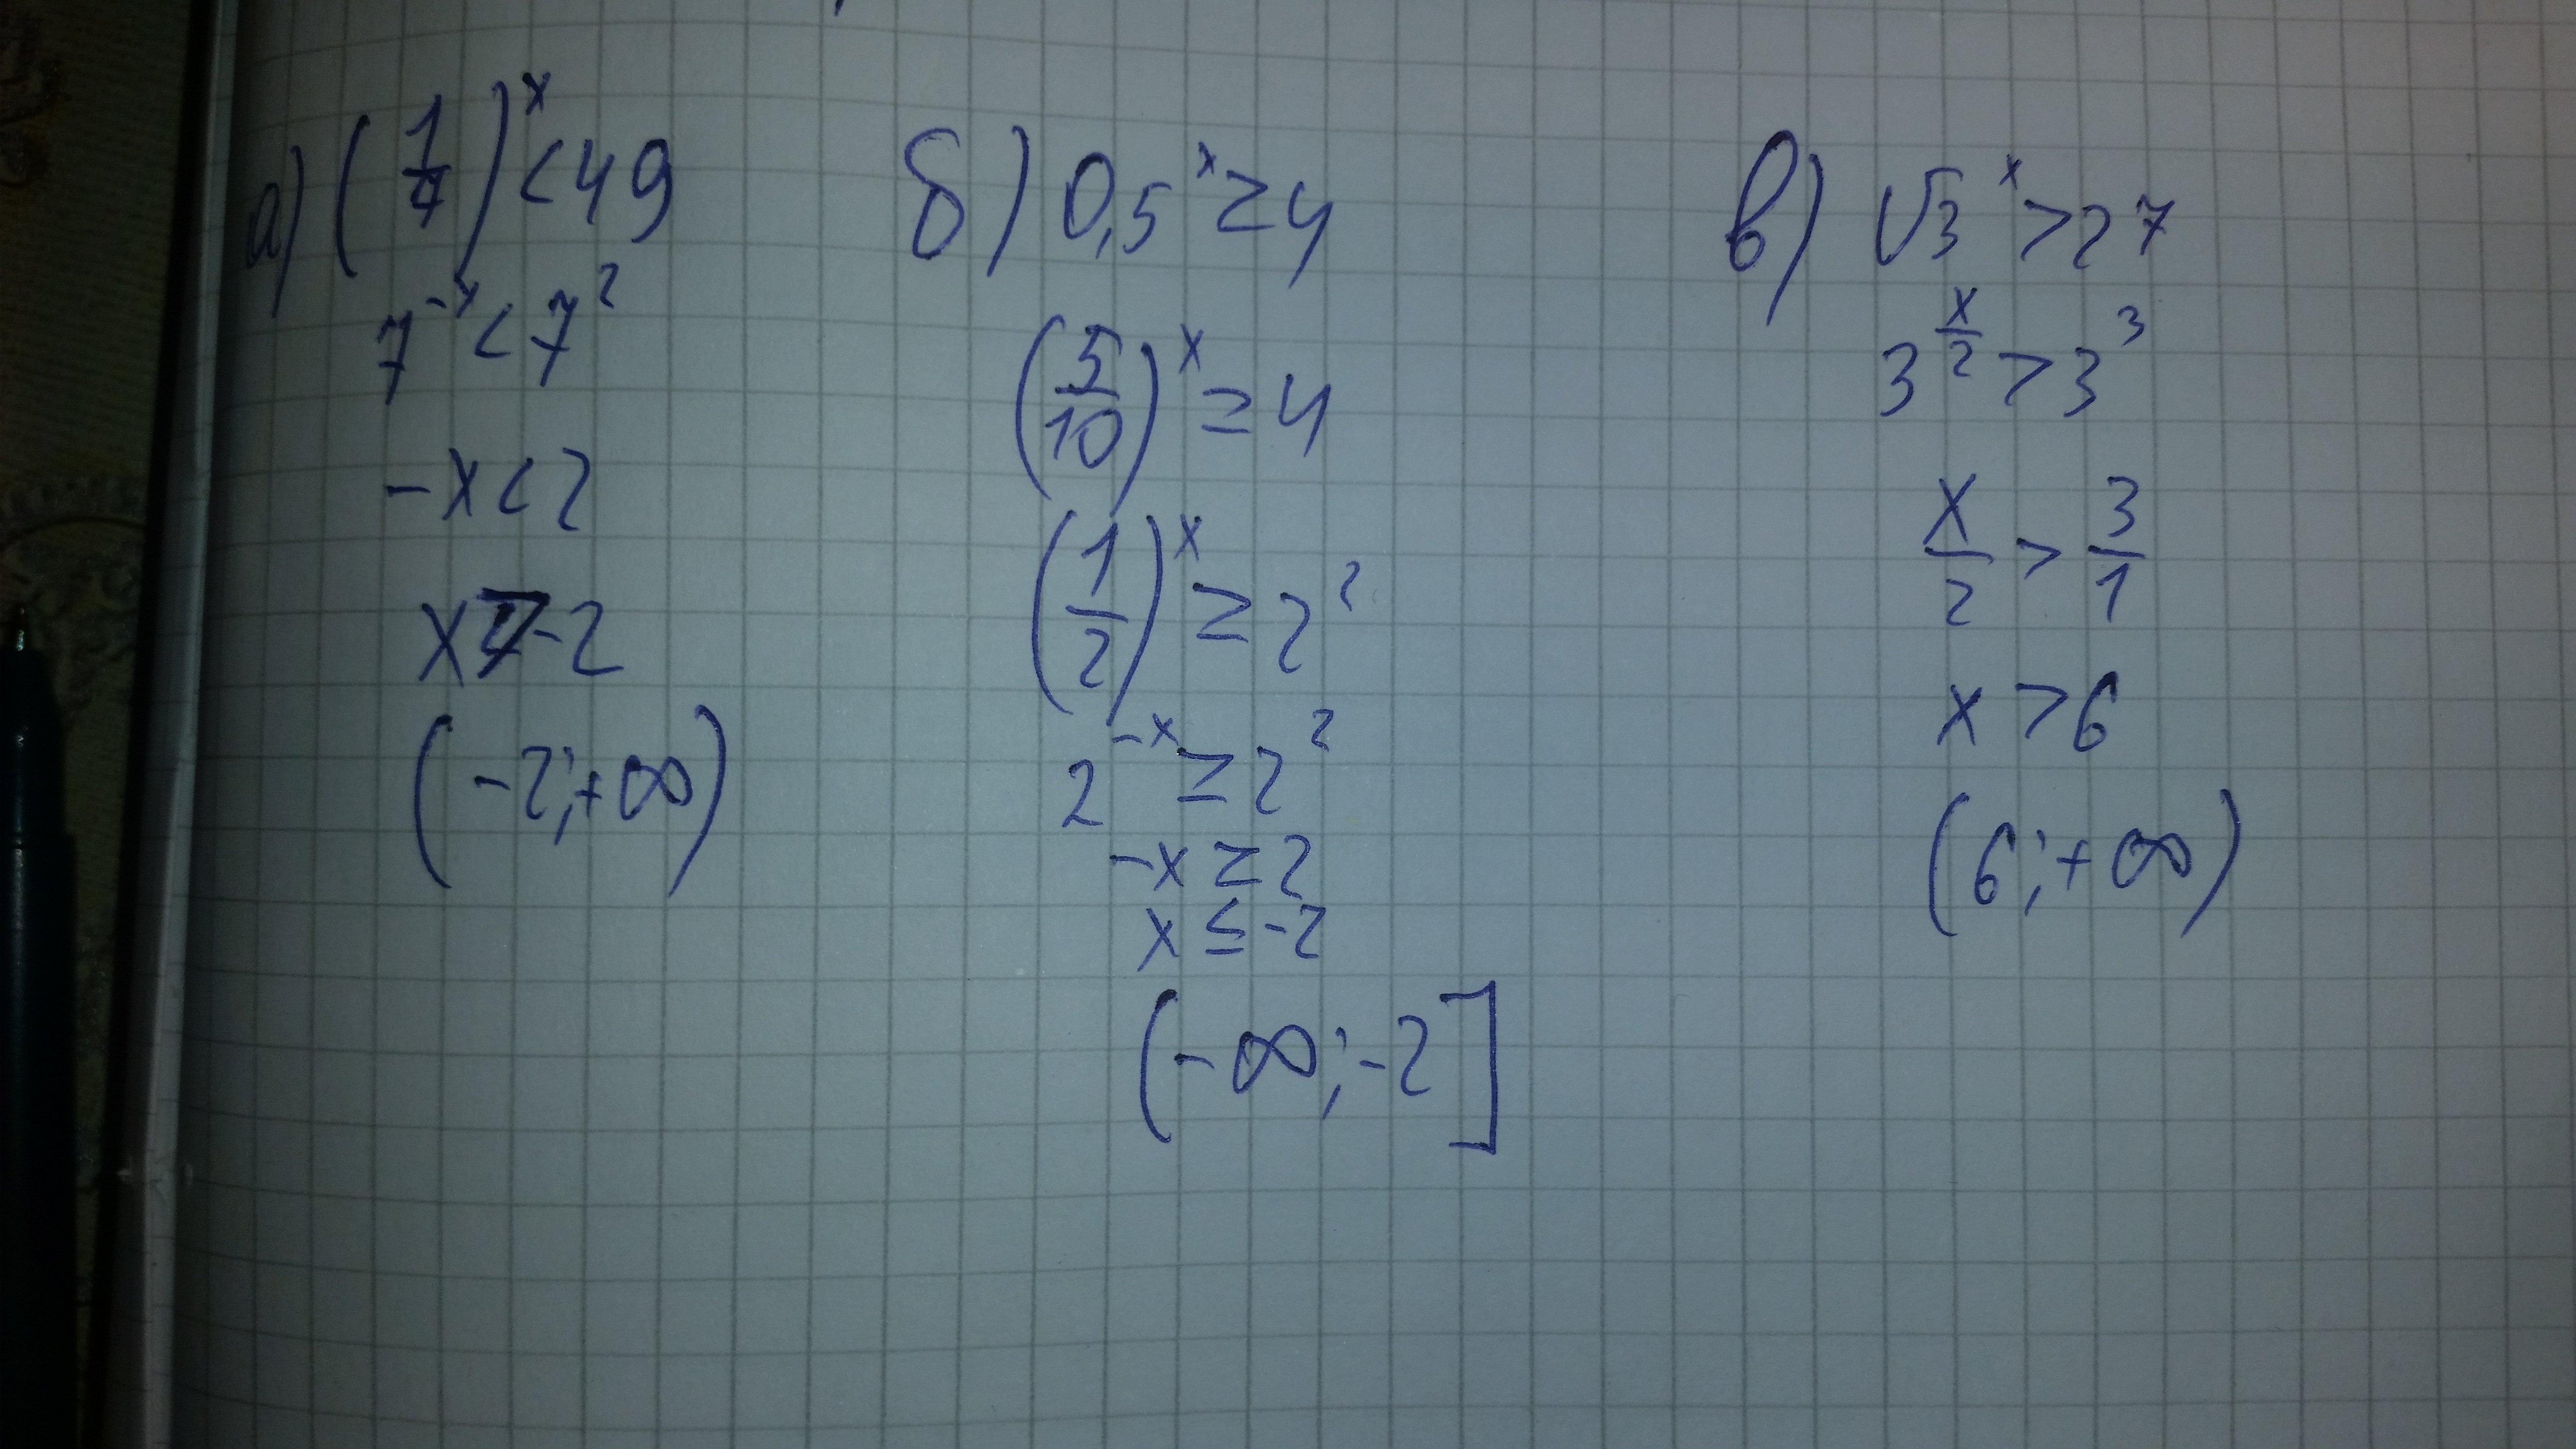 а) (1/7)^x < 49
7^-x < 7^2
-x < 2
x > -2
(-2;+∞)
б) 0,5^x ≥ 4
(5/10)^x ≥ 4
(1/2)^x ≥ 2^2
2^-x ≥ 2^2
-x ≥ 2
x ≤ -2
(-∞;-2]
в) √3^x > 27
3^(x/2) > 3^3
x/2 > 3/1
x > 6
(6;+∞)